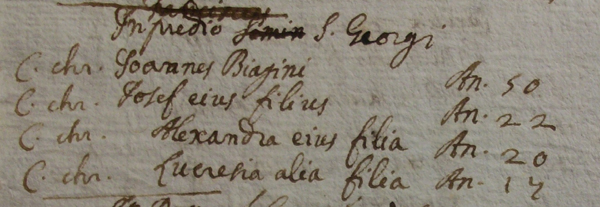 In predio S. Georgi
C. chr. Joannes Biagini An. 50
C. chr. Josef eius filius An. 22
C. chr. Alexandra eius filia An. 20
C. chr. Lucresia alia filia An. 17